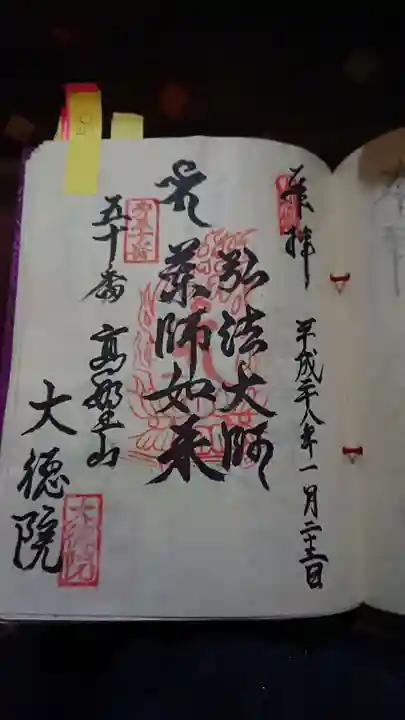 奉拝
平成二八年一月二十三日
弘法大師
薬師如来
五十番 高野山
大徳院
大徳院